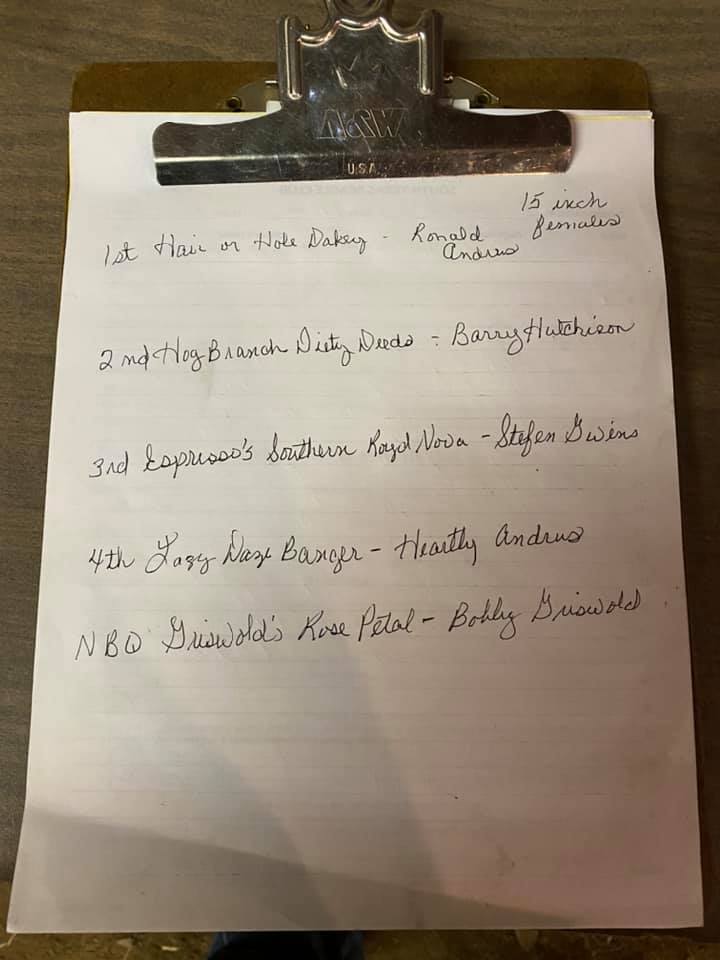 ACSW
U.S.A.
15 inch
females
1st Hair or Hole Dakey - Ronald
Andrus
2nd Hog Branch Dirty Deeds - Barry Hutchison
3rd Espresso's Southern Royal Nova - Stefen Gwins
4th Lazy Daze Banger - Heartly Andrus
NBQ Griswold's Rose Petal - Bobby Griswold